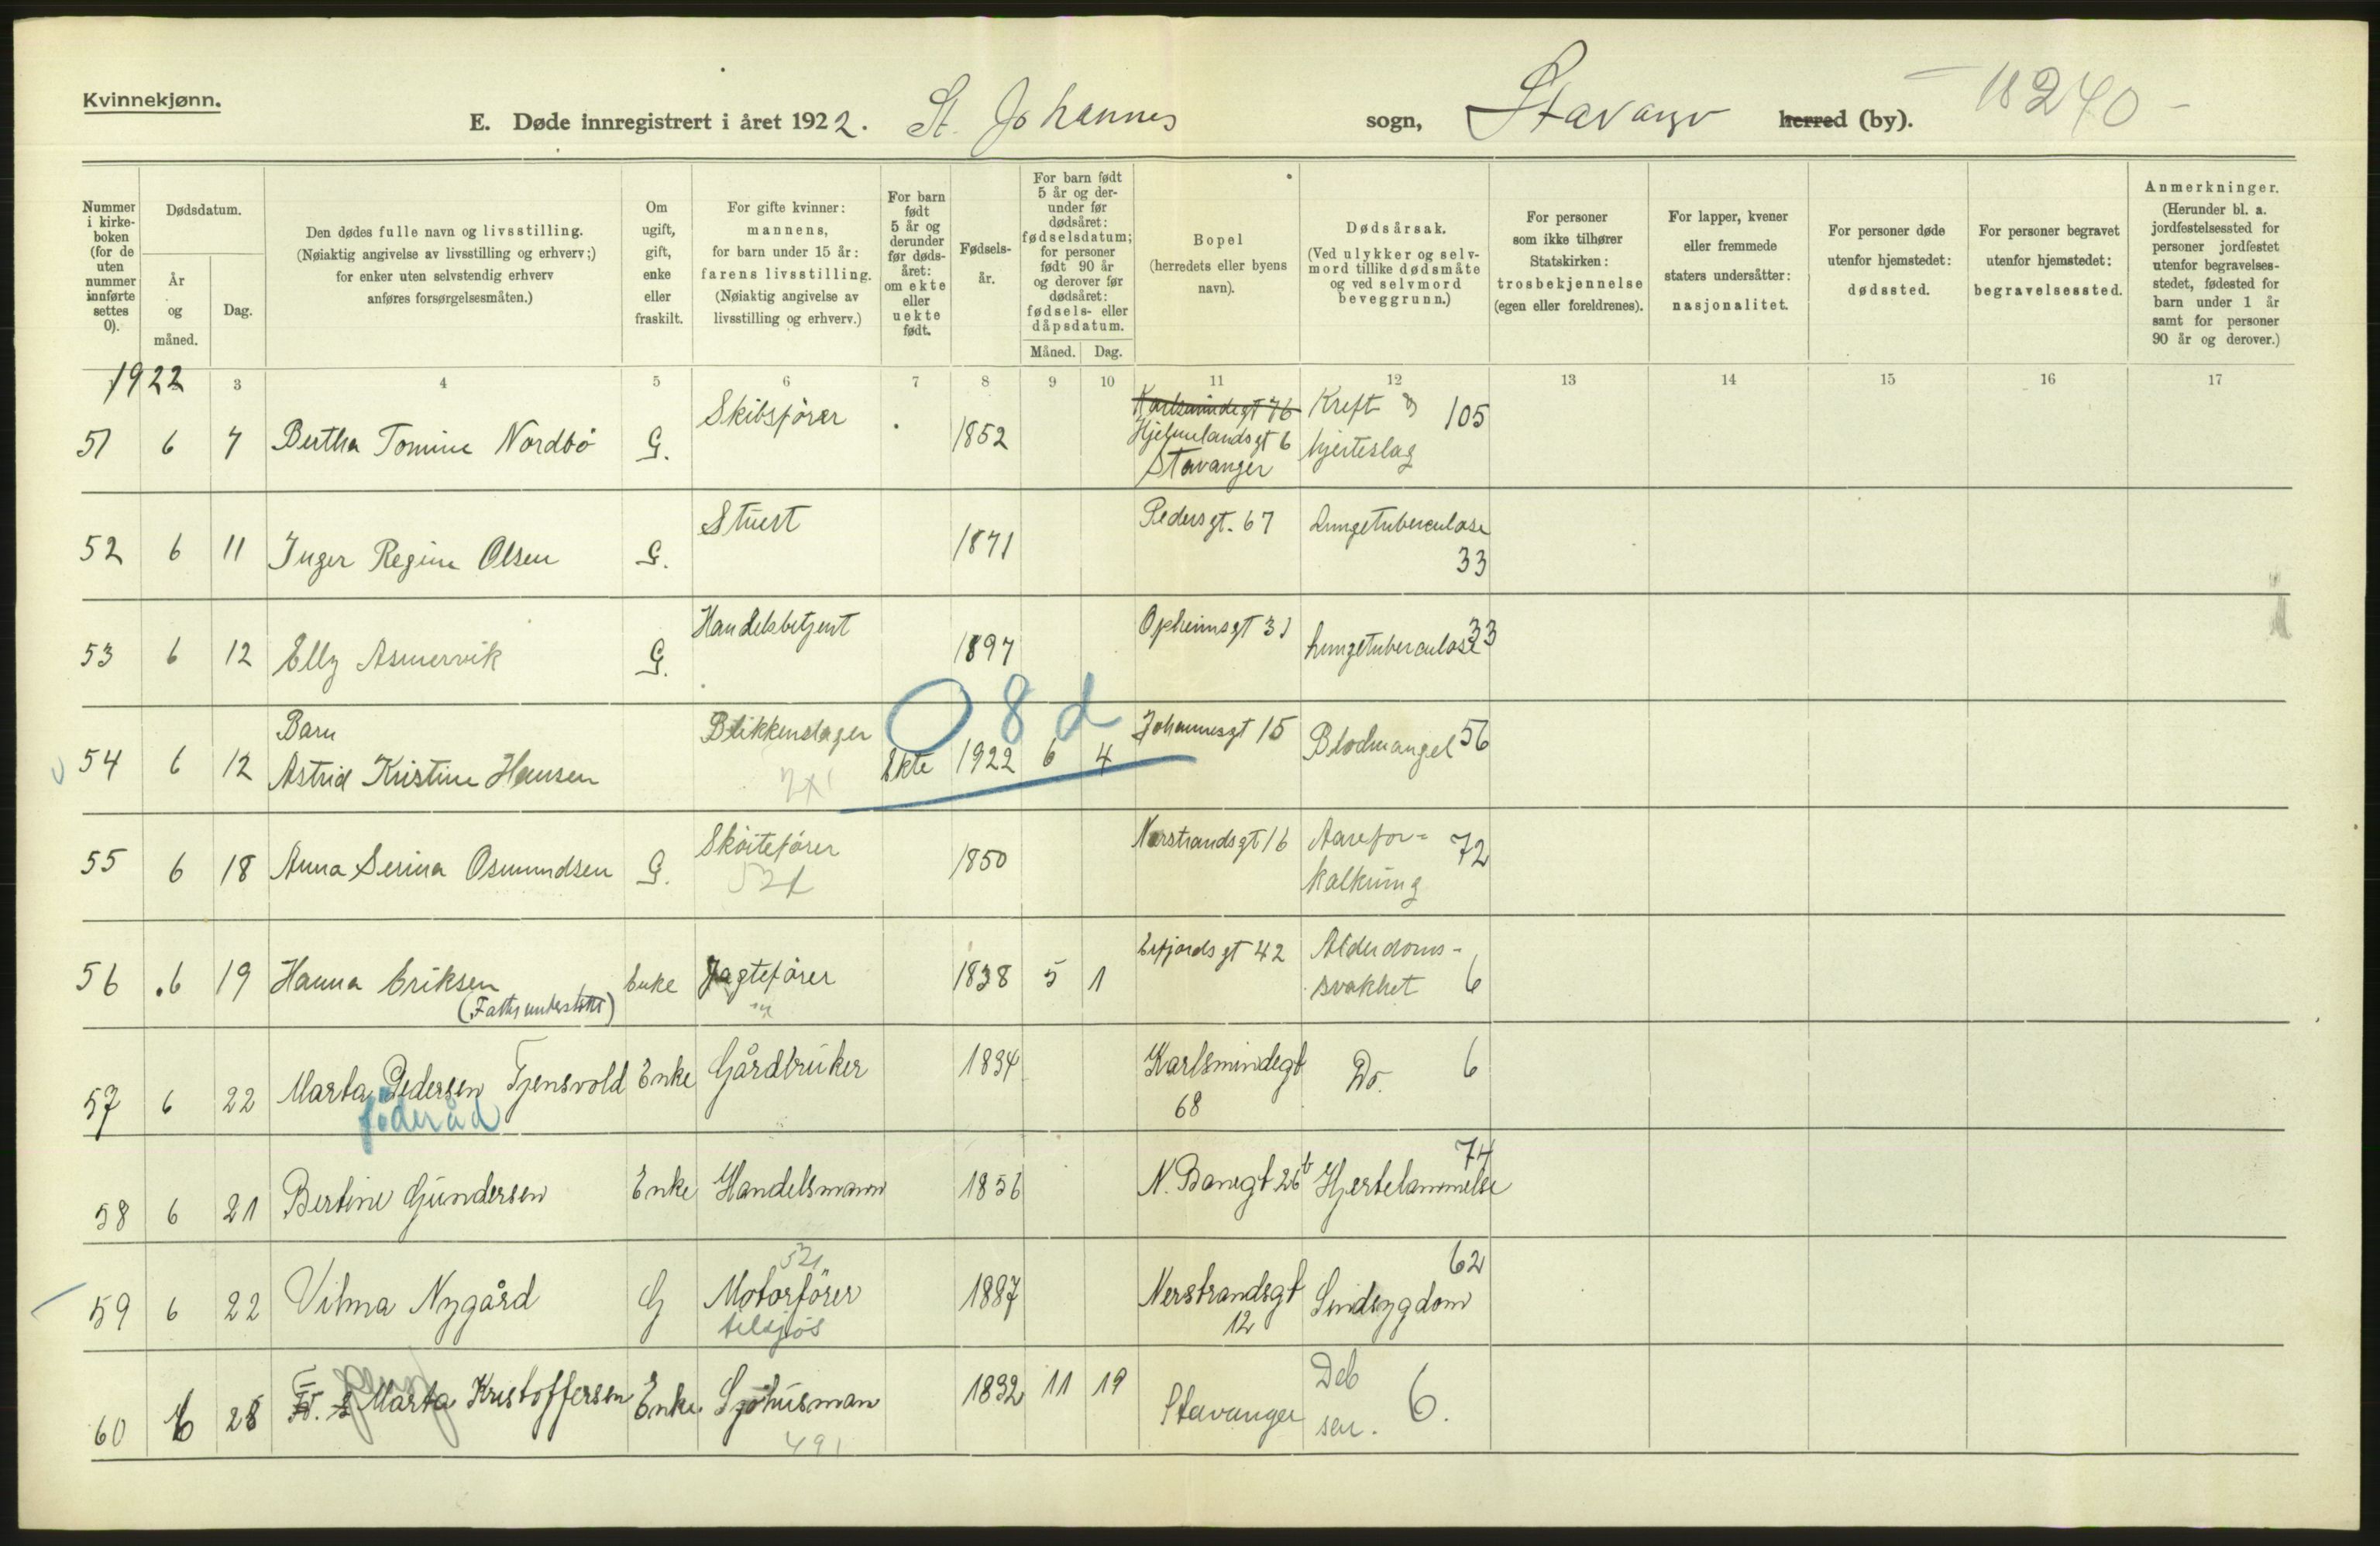 Kvinnekjønn.
E. Døde innregistrert i året 1922. St. Johannes sogn, Stavanger herred (by). 18240 -
Nummer i kirke-boken (for de uten nummer innførte settes 0).
Dødsdatum.
År og måned.
Dag.
Den dødes fulle navn og livsstilling.
(Nøiaktig angivelse av livsstilling og erhverv;)
for enker uten selvstendig erhverv
anføres forsørgelsesmåten.)
Om ugift, gift, enke eller fraskilt.
For gifte kvinner: mannens, for barn under 15 år: farens livsstilling. (Nøiaktig angivelse av livsstilling og erhverv.)
For barn født 5 år og derunder før døds-året: om ekte eller uekte født.
Fødsels-år.
For barn født 5 år og der-under før dødsåret: fødselsdatum; for personer født 90 år og derover før dødsåret: fødsels- eller dåpsdatum.
Måned. Dag.
Bopel (herredets eller byens navn).
Dødsårsak. (Ved ulykker og selv-mord tillike dødsmåte og ved selvmord beveggrunn.)
For personer som ikke tilhører Statskirken: trosbekjennelse (egen eller foreldrenes).
For lapper, kvener eller fremmede staters undersåtter: nasjonalitet.
For personer døde utenfor hjemstedet: dødssted.
For personer begravet utenfor hjemstedet: begravelsessted.
Anmerkninger. (Herunder bl. a. jordfestelsessted for personer jordfestet utenfor begravelses-stedet, fødested for barn under 1 år samt for personer 90 år og derover.)
1922 3 4 5 6 7 8 9 10 11 12 13 14 15 16 17
51 6 7 Bertha Tomine Nordbö G. Skibsfører 1852 Karlsmindegt 76 Hjelmelandsgt 6 Stavanger Kreft & hjerteslag 105
52 6 11 Inger Regine Olsen G. Stuert 1871 Pedersgt. 67 Lungetuberculose 33
53 6 12 Elly Asmervik G. Handelsbetjent 1897 Opheimsgt 31 Lungetuberculose 33
O 8 d
54 6 12 Barn Astrid Kristine Hansen Blikkenslager Ekte 1922 6 4 Johannesgt 15 Blodmangel 56
55 6 18 Anna Serina Osmundsen G. Skøitefører 521 1850 Nerstrandsgt 16 Aarefor=kalkning 72
56 6 19 Hanna Eriksen (Fattigunderstøtt) Enke Jagtefører 1838 5 1 Erfjordsgt 42 Alderdoms-svakhet 6
57 6 22 Marta Pedersen Tjensvold föderåd Enke Gårdbruker 1834 Karlsmindegt 68 Do. 6
58 6 21 Bertine Gundersen Enke Handelsmann 1856 N. Banegt 26b Hjertelammelse 74
59 6 22 Vilma Nygård G 521 Motorfører tilsjøs 1887 Nerstrandsgt 12 Sindsygdom 62
60 6 28 Marta Kristoffersen Enke Sjøhusmann 491 1832 11 19 Stavanger Deb sen. 6.